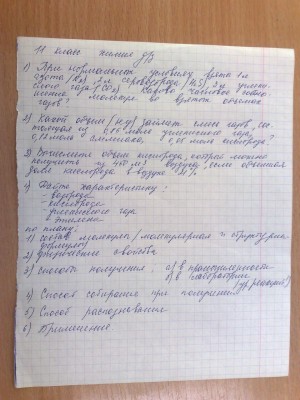 11 класс химия д/з
1) При нормальных условиях взяты 1л
азота /N₂/ 2л сероводорода /H₂S/, 3л углекис-
лого газа /CO₂/ Каково числовое
молекул во взятых объёмах
газов?
2) Какой объём /н.у/ займет смесь газов, сос-
тоящая из моль углекислого газа,
моль кислорода?
3) Вычислите объём кислорода, который можно
получить из м³ воздуха, если объемная
доля кислорода в воздухе 21%
4) Дайте характеристику:
- водорода
- кислорода
- углекислого газа
- этилена
по плану:
1) состав молекулы /молекулярная и структурная
формулы/
2) физические свойства
3) способы получения: а) в промышленности
б) в лаборатории
/ур. реакций/
4) Способ собирания при получении
5) Способ распознавания
6) Применение